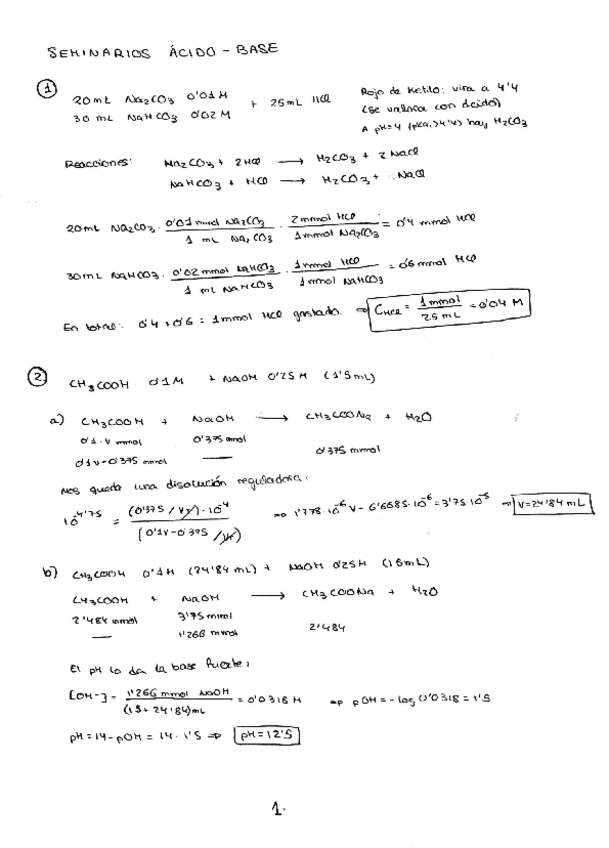 SEMINARIOS ÁCIDO - BASE
① 20 mL Na₂CO₃ 0'01 M
30 mL NaHCO₃ 0'02 M
+ 25 mL HCl
Rojo de Metilo: vira a 4'4
(se valora con ácido)
A pH=4 (pKa₁>4'4) hay H₂CO₃
Reacciones: Na₂CO₃ + 2HCl ⟶ H₂CO₃ + 2 NaCl
NaHCO₃ + HCl ⟶ H₂CO₃ + NaCl
20mL Na₂CO₃ · 0'01 mmol Na₂CO₃ / 1 mL Na₂CO₃ · 2 mmol HCl / 1 mmol Na₂CO₃ = 0'4 mmol HCl
30mL NaHCO₃ · 0'02 mmol NaHCO₃ / 1 mL NaHCO₃ · 1 mmol HCl / 1 mmol NaHCO₃ = 0'6 mmol HCl
En total: 0'4 + 0'6 = 1 mmol HCl gastado. ⇒ C_HCl = 1 mmol / 25 mL = 0'04 M
② CH₃COOH 0'1M + NaOH 0'25 M (1'5 mL)
a) CH₃COOH + NaOH ⟶ CH₃COONa + H₂O
0'1·V mmol 0'375 mmol
0'1V-0'375 mmol — 0'375 mmol
Nos queda una disolución reguladora:
10^-4'75 = (0'375 / V_T)·10^-4 / (0'1V-0'375 / V_T) ⇒ 1'778·10^-6 V - 6'6685·10^-6 = 3'75·10^-5 ⇒ V=24'84 mL
b) CH₃COOH 0'1M (24'84 mL) + NaOH 0'25M (15mL)
CH₃COOH + NaOH ⟶ CH₃COONa + H₂O
2'484 mmol 3'75 mmol
— 1'266 mmol 2'484
El pH lo da la base fuerte:
[OH-] = 1'266 mmol NaOH / (15+24'84)mL = 0'0318 M ⇒ pOH = -log 0'0318 = 1'5
pH = 14 - pOH = 14 - 1'5 ⇒ pH = 12'5
1.